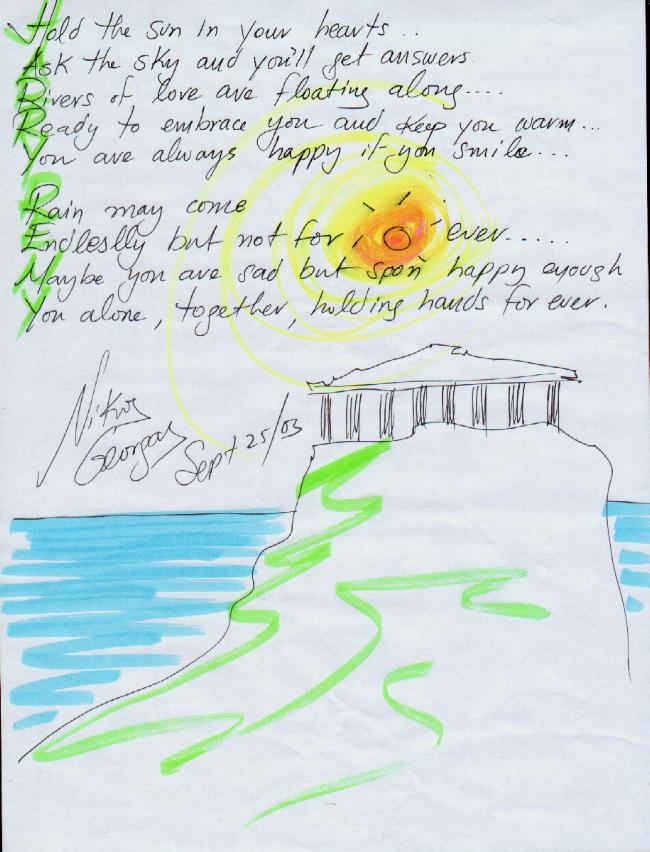 Hold the sun in your hearts..
Ask the sky and you'll get answers.
Rivers of love are floating along....
Ready to embrace you and keep you warm...
You are always happy if you smile....
Rain may come
Endleslly but not for ever......
Maybe you are sad but soon happy enough
You alone, together, holding hands for ever.
Nikos
Georgas
Sept 25/03